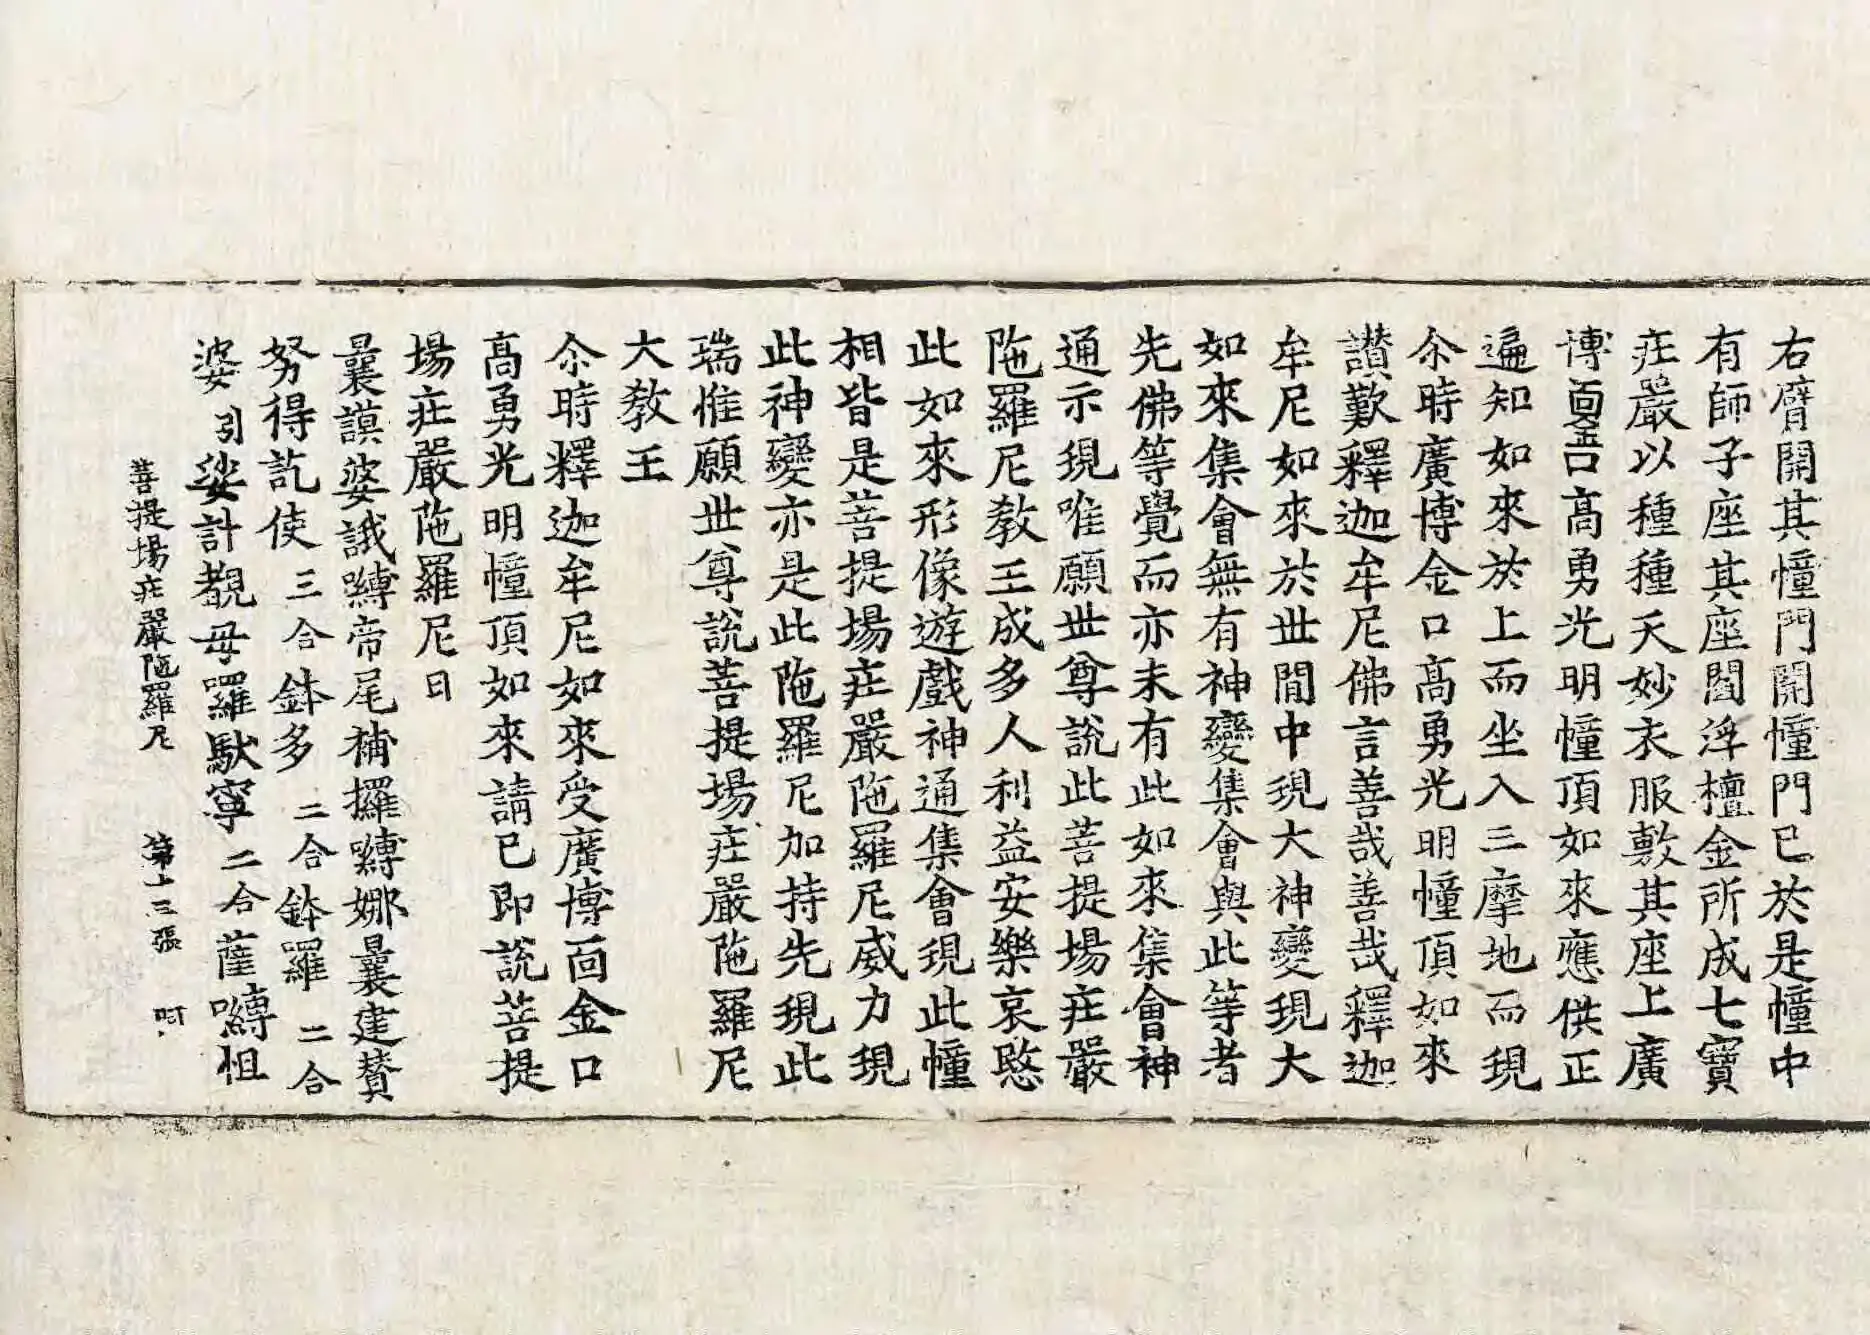 右臂開其幢門開幢門已於是幢中
有師子座其座閻浮檀金所成七寶
庄嚴以種種天妙衣服敷其座上廣
博面金口高勇光明幢頂如來應供正
遍知如來於上而坐入三摩地而現
尒時廣博金口高勇光明幢頂如來
讃歎釋迦牟尼佛言善哉善哉釋迦
牟尼如來於世間中現大神變現大
如來集會無有神變集會與此等者
先佛等覺而亦未有此如來集會神
通示現唯願世尊説此菩提場庄嚴
陁羅尼教王成多人利益安樂哀愍
此如來形像遊戲神通集會現此幢
相皆是菩提場庄嚴陁羅尼威力現
此神變亦是此陁羅尼加持先現此
瑞惟願世尊説菩提場庄嚴陁羅尼
大教王
尒時釋迦牟尼如來受廣博面金口
高勇光明幢頂如來請已即説菩提
場庄嚴陁羅尼曰
曩謨婆誐嚩帝尾補攞嚩娜曩建賛
努得訖使三合鉢多二合鉢羅二合
婆引娑計覩母羅馱寧二合薩嚩怛
菩提場庄嚴陁羅尼 第十三張